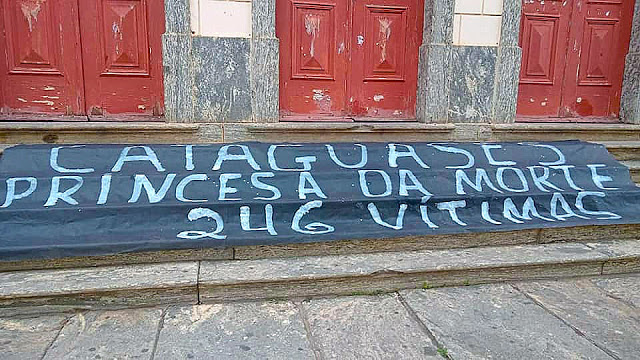 CATAGUASES
PRINCESA DA MORTE
246 VÍTIMAS